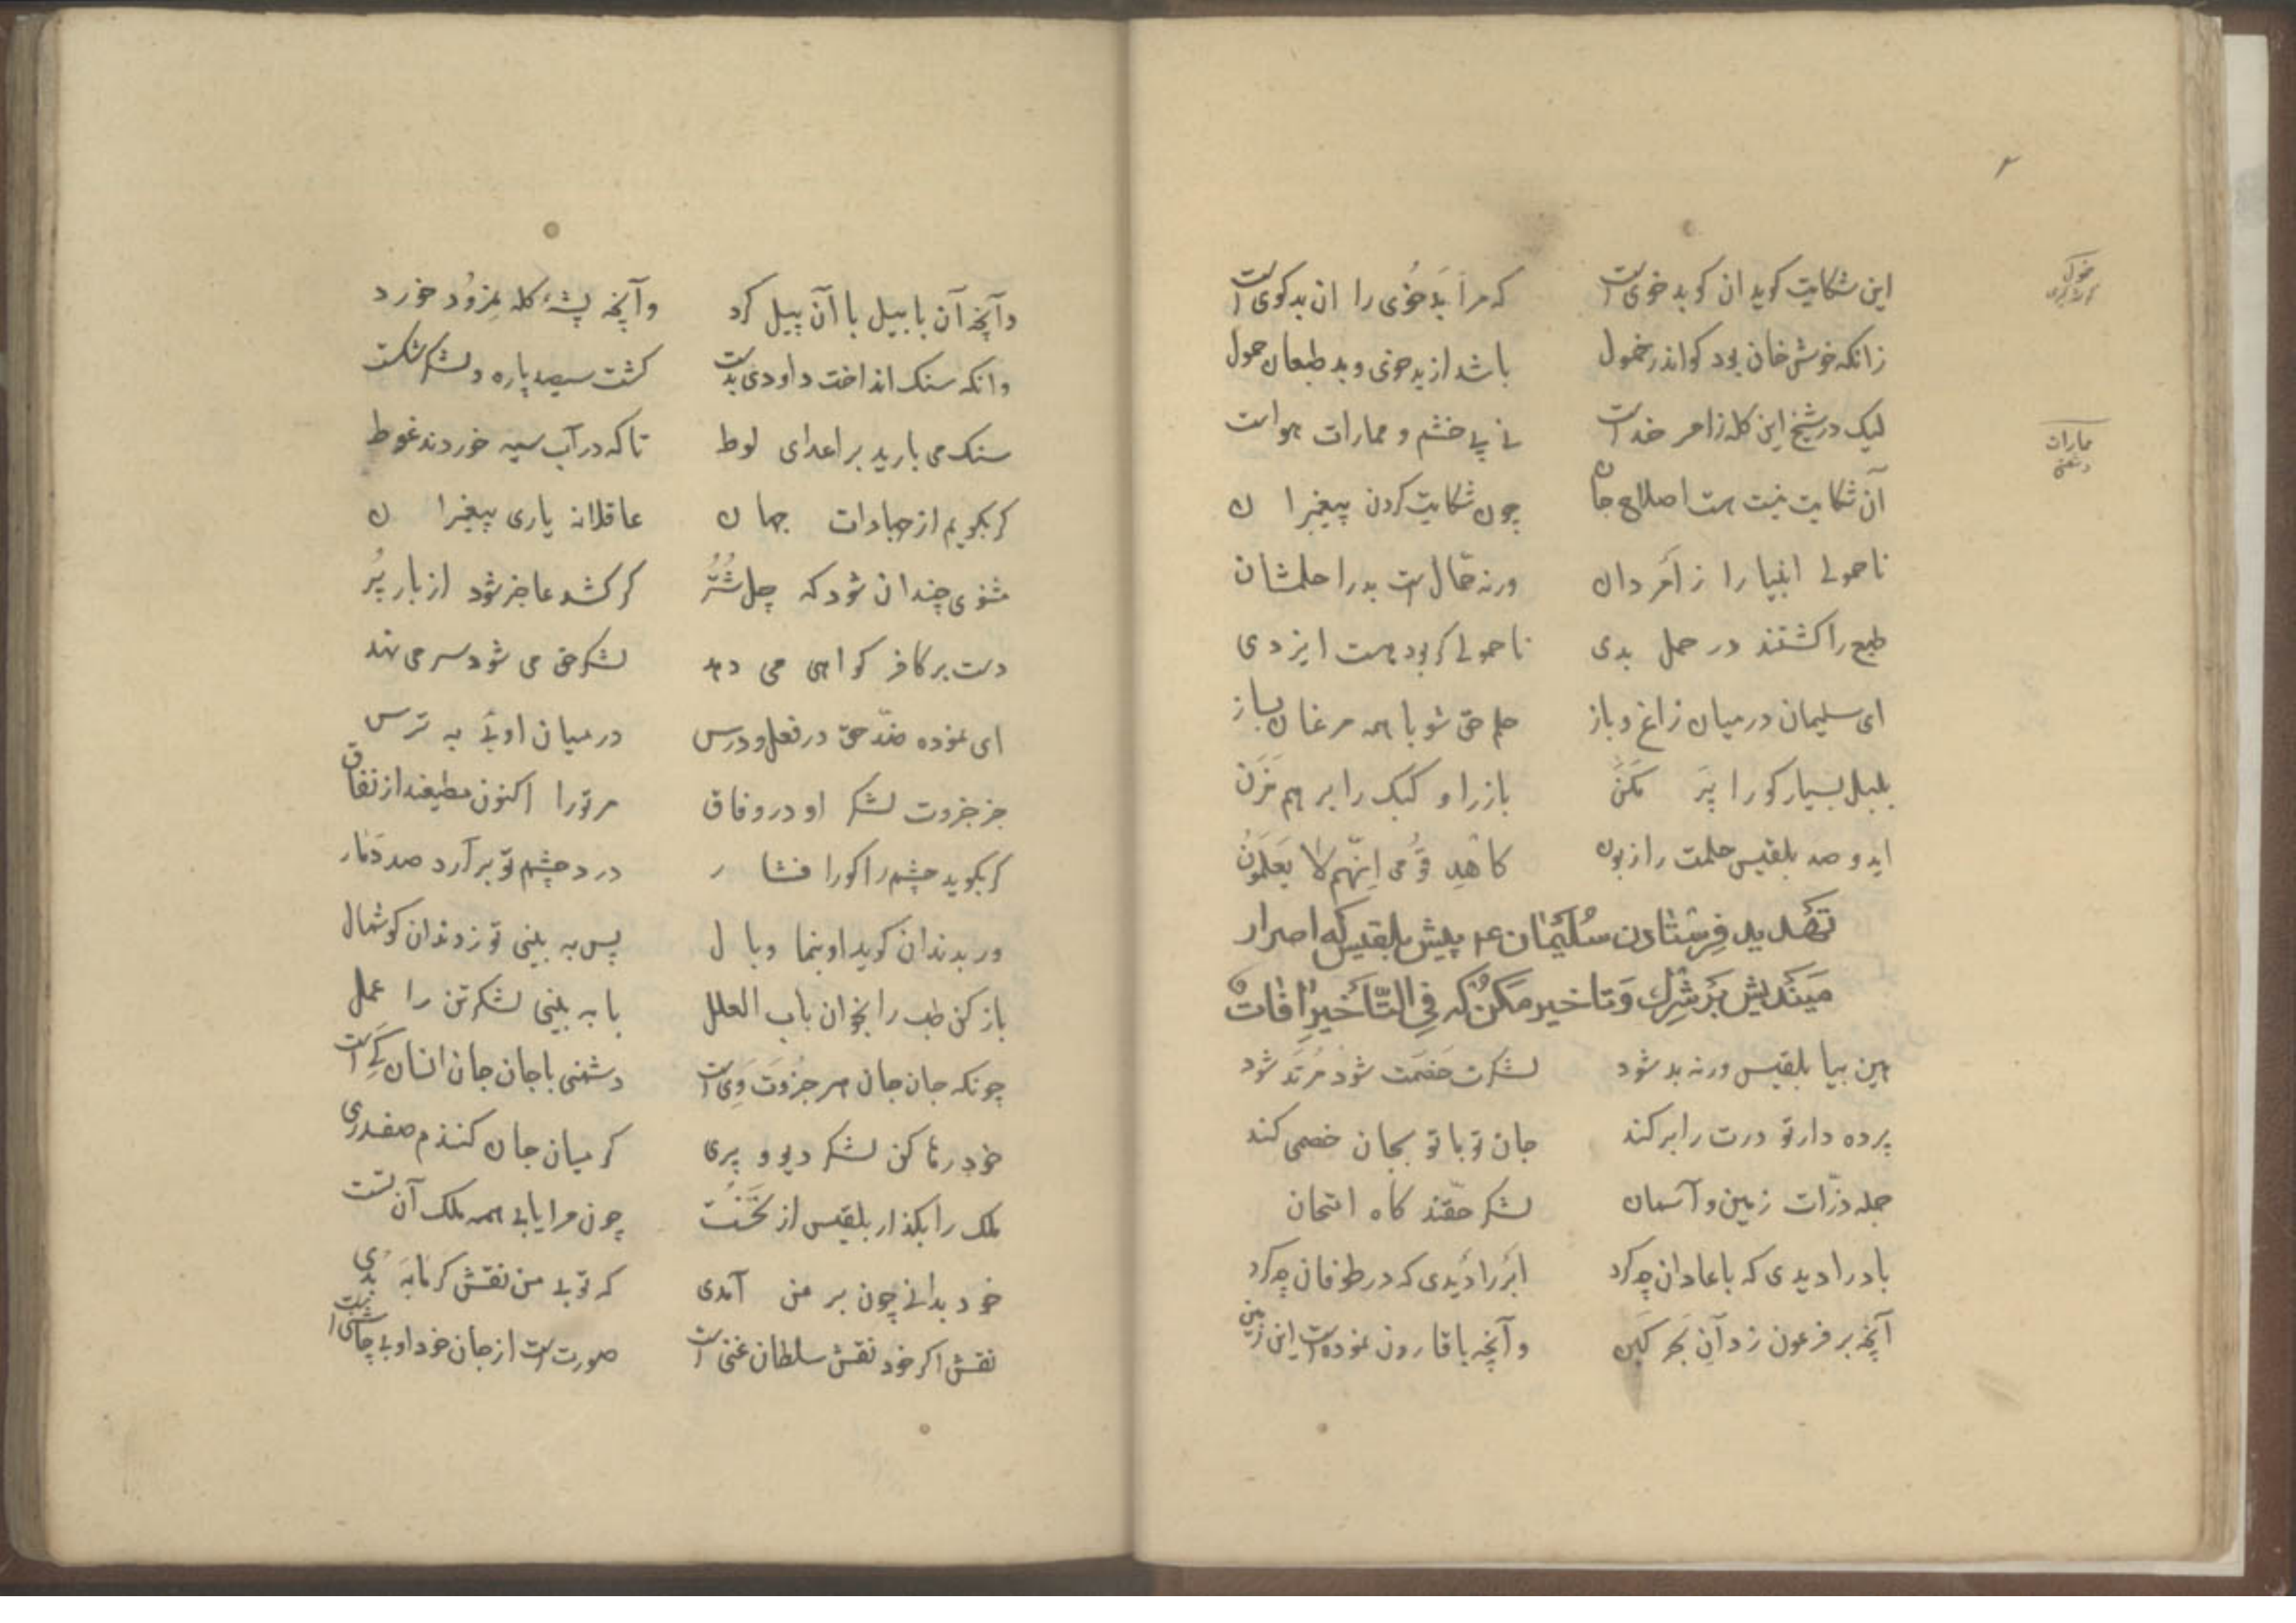 ۲
این شکایت کوید ان کو بد خوی است که مرآ بَد خُوی را ان بد کوی است
خمول
زانکه خوش خان بود کو اندر خمول باشد از بد خوی و بد طبعان حمول
لیک در شیخ این کله ز امر خداست نے پے خشم و ممارات هواست
ممارات
دشمنی
آن شکایت نیست هست اصلاح جان چون شکایت کردن پیغمبران
ناحمولی انبیا را ز امر دان ورنه حمّال است بد را حلمشان
طبع را کشتند در حمل بدی ناحمولی کر بود هست ایزدی
ای سلیمان در میان زاغ و باز حلم حق شو با همه مرغان بساز
بلبل بسیار کو را پَر مَکَنْ باز را و کبک را بر هم مَزَن
ای دو صد بلقیس حلمت را زبون کاهْدِ قَوْمی اِنّهم لا یَعلَمُونْ
تهَدید فِرِستادن سُلَیْمان ع م پیش بلقیس که اصرار
مَیَندیش بَر شِرک وَ تاخیر مَکُن که فی التّأخیرِ آفات
هین بیا بلقیس ورنه بد شود لشکرت خَصمَت شود مُرتَد شود
پرده دار تو درت را بر کند جان تو با تو بجان خصمی کند
جمله ذرّات زمین و آسمان لشکر حقّند کاه امتحان
باد را دیدی که با عادان چه کرد ابر را دیدی که در طوفان چه کرد
آنچه بر فرعون زد آن بَحر کَین و آنچه با قارون نموده است این زمین
و آنچه آن بابیل با آن پیل کرد و آنچه پشۀ کله نمرُود خورد
وانکه سنک انداخت داودی بدست کشت سیصد پاره و لشکر شکست
سنک می بارید بر اعدای لوط تا که در آب سیه خوردند غوط
کر بکویم از جمادات جهان عاقلانه یاری پیغمبران
مثنوی چندان شود که چل شُتُر کر کشد عاجز شود از بار پُر
دست بر کافر کواهی می دهد لشکر حق می شود سر می نهد
ای نموده ضدّ حق در فعل و درس در میان اوئی به ترس
جز جزوت لشکر او در وفاق مر تو را اکنون مطیعند از نفاق
کر بکوید چشم را کو را فشار درد چشم تو بر آرد صد دَمار
ور بدندان کوید او بنما وبال پس به بینی تو ز دندان کوشمال
باز کن طب را بخوان باب العلل با به بینی لشکر تن را عمل
چونکه جان جان هر جُزوَت وَی است دشمنی با جان جان آسان کَے است
خود رها کن لشکر دیو و پری کز میان جان کنندم صفدری
ملک را بکذار بلقیس از نُخُست چون مرا یابی همه ملک آن تست
خود بدانے چون بر من آمدی که تو بی من نقش کرمابه بُدی
نقش اکر خود نقش سلطان غنی است صورت است از جان خود او بی چاشنی است